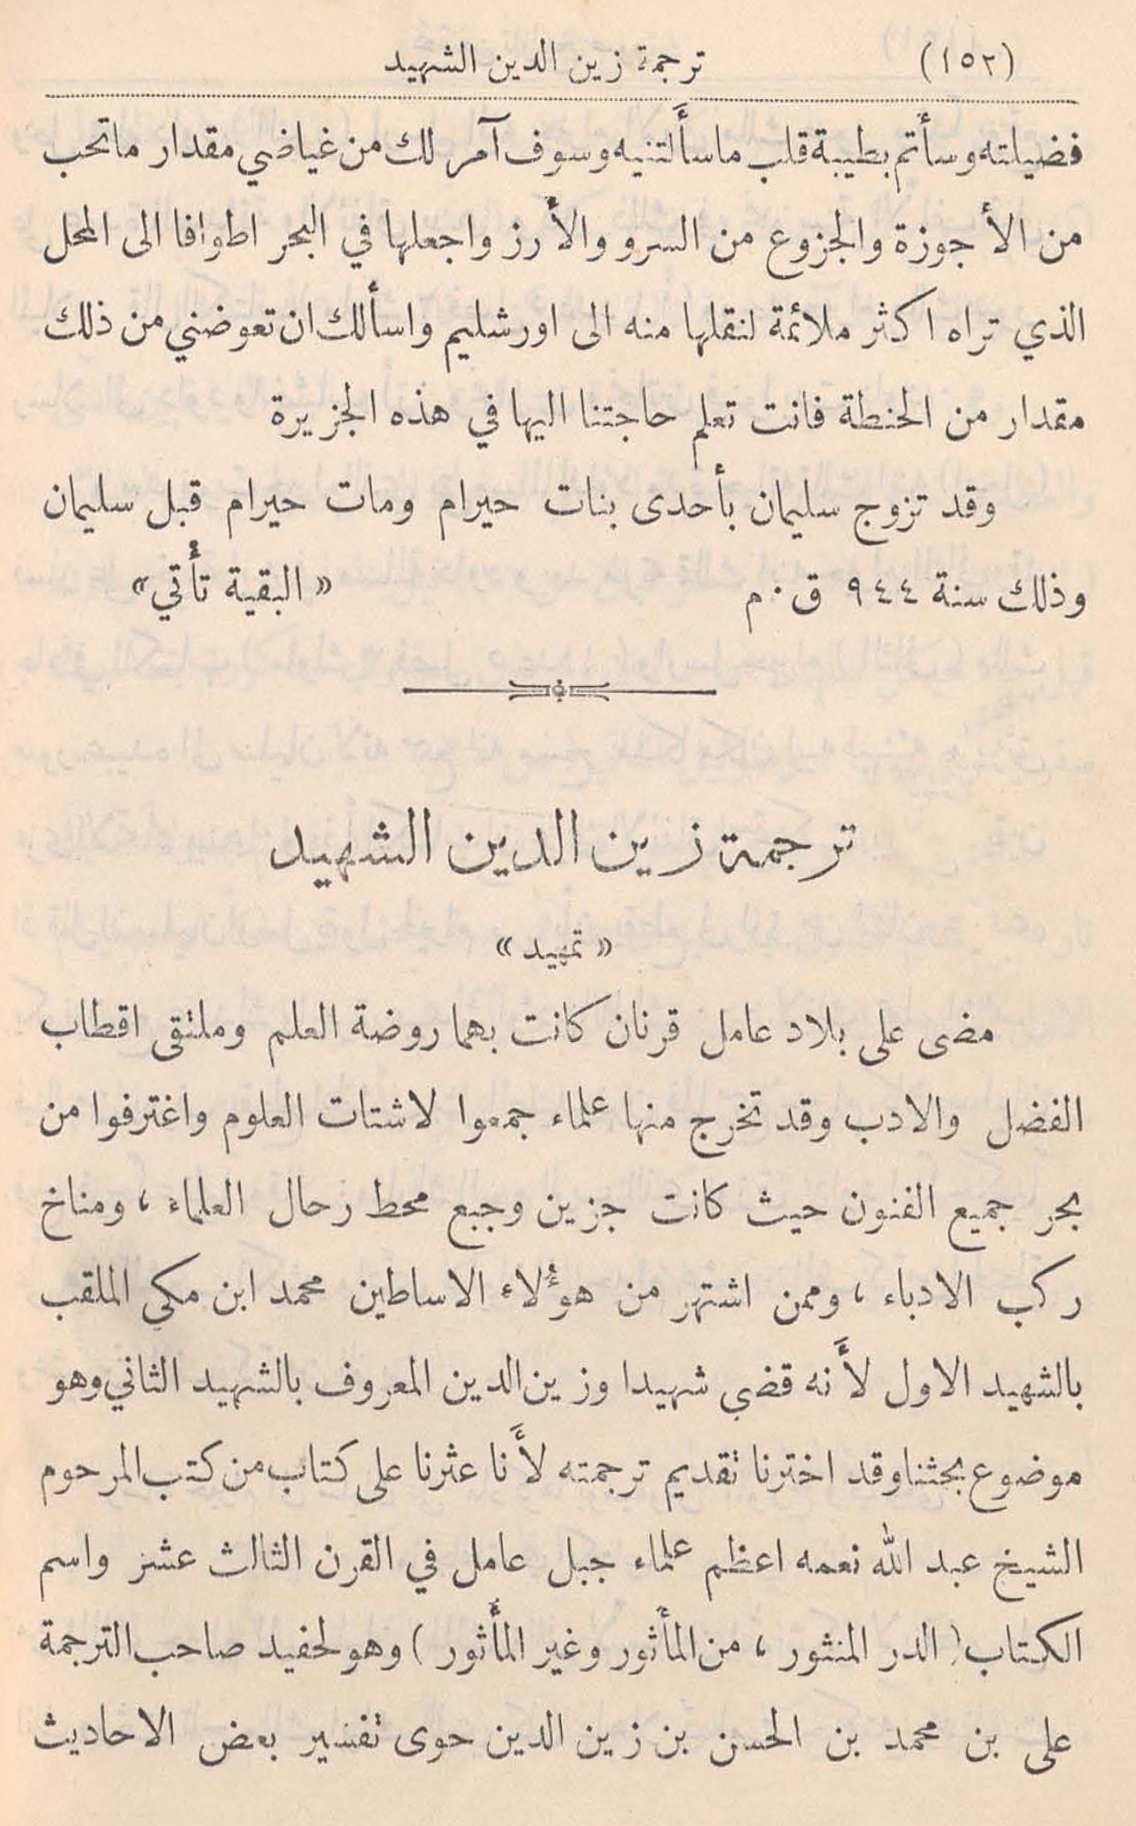 (١٥٢) ترجمة زين الدين الشهيد
فضيلته وسأتم بطيبة قلب ما سأَلتنيه وسوف آمر لك من غياضي مقدار ما تحب
من الأجوزة والجزوع من السرو والأرز واجعلها في البحر اطوافا الى المحل
الذي تراه اكثر ملائمة لنقلها منه الى اورشليم واسألك ان تعوضني من ذلك
مقدار من الحنطة فانت تعلم حاجتنا اليها في هذه الجزيرة
وقد تزوج سليمان بأحدى بنات حيرام ومات حيرام قبل سليمان
وذلك سنة ٩٤٤ ق.م «البقية تأتي»
ترجمة زين الدين الشهيد
«تمهيد»
مضى على بلاد عامل قرنان كانت بهما روضة العلم وملتقى اقطاب
الفضل والادب وقد تخرج منها علماء جمعوا لاشتات العلوم واغترفوا من
بحر جميع الفنون حيث كانت جزين وجبع محط رحال العلماء، ومناخ
ركب الادباء، وممن اشتهر من هؤلاء الاساطين محمد ابن مكي الملقب
بالشهيد الاول لأَنه قضى شهيدا وزين الدين المعروف بالشهيد الثاني وهو
موضوع بحثنا وقد اخترنا تقديم ترجمته لأَنا عثرنا على كتاب من كتب المرحوم
الشيخ عبد الله نعمه اعظم علماء جبل عامل في القرن الثالث عشر واسم
الكتاب (الدر المنثور، من المأثور وغير المأثور) وهو لحفيد صاحب الترجمة
على بن محمد بن الحسن بن زين الدين حوى تفسير بعض الاحاديث